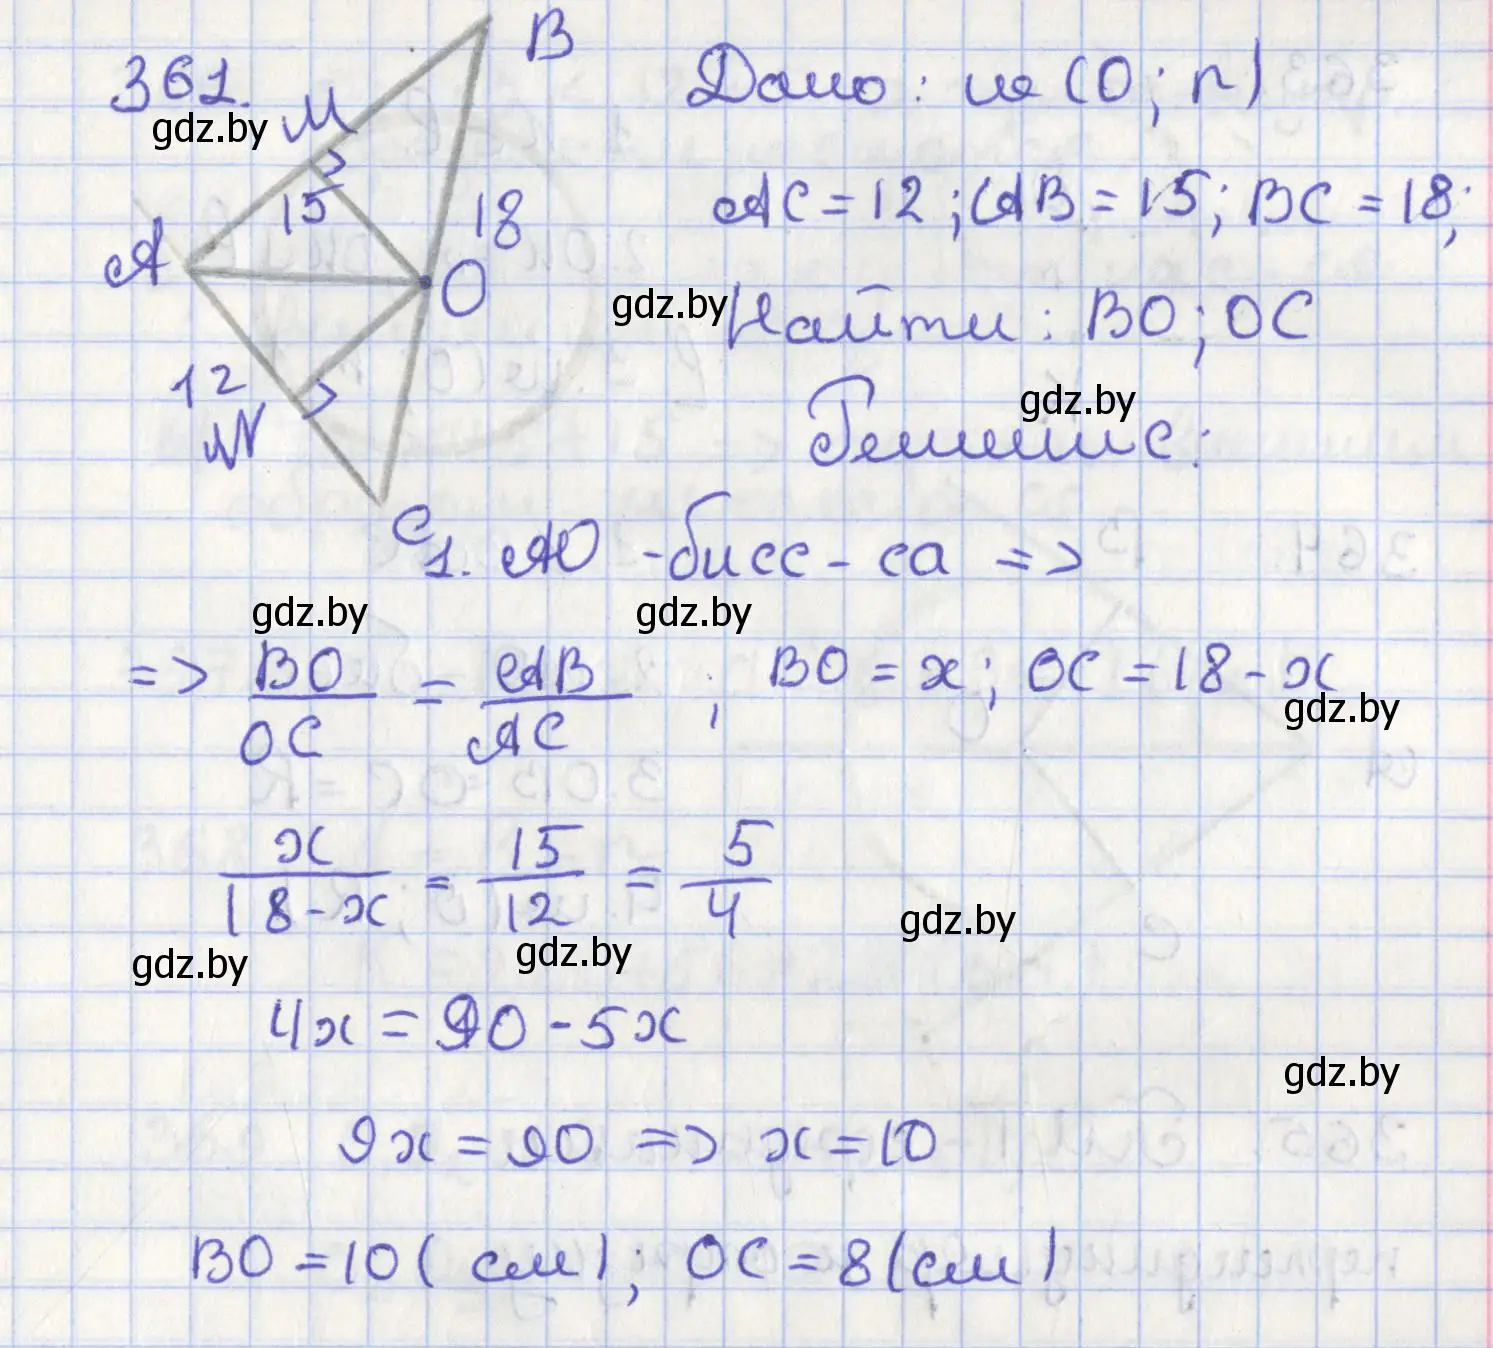 361.
gdz.by
B
M
15
18
A
O
12
N
C
Дано: ω (O; r)
AC = 12; AB = 15; BC = 18;
gdz.by
Найти: BO; OC
gdz.by
Решение:
1. AO - бисс-са =>
gdz.by gdz.by
=> BO/OC = AB/AC ; BO = x; OC = 18 - x
gdz.by
x/18-x = 15/12 = 5/4
gdz.by gdz.by gdz.by
4x = 90 - 5x
gdz.by
9x = 90 => x = 10
BO = 10 (см); OC = 8 (см)